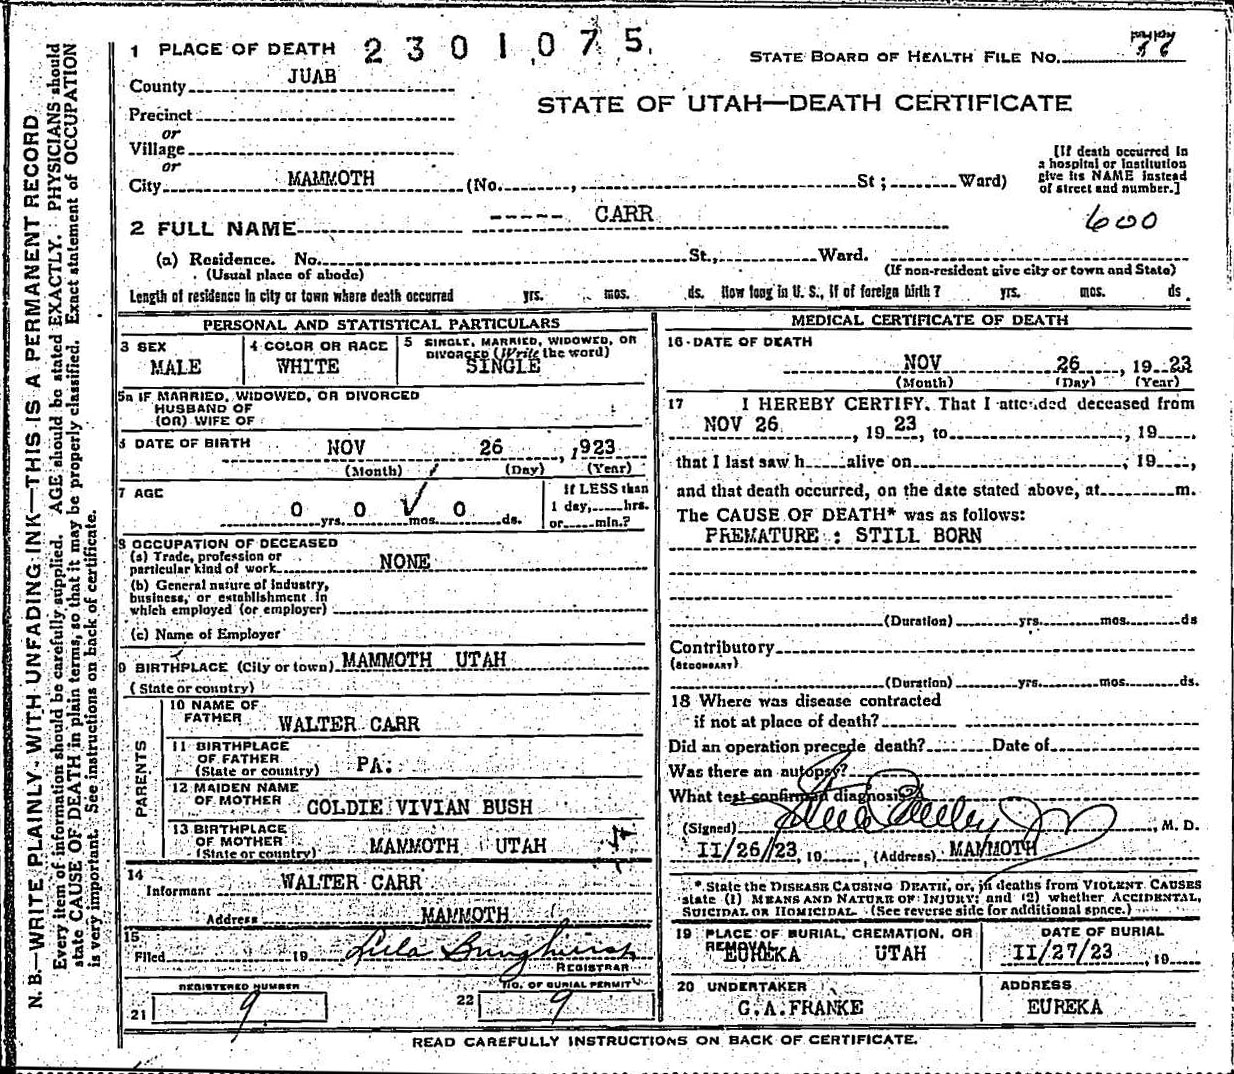 N. B.—WRITE PLAINLY, WITH UNFADING INK—THIS IS A PERMANENT RECORD
Every item of information should be carefully supplied. AGE should be stated EXACTLY. PHYSICIANS should
state CAUSE OF DEATH in plain terms, so that it may be properly classified. Exact statement of OCCUPATION
is very important. See instructions on back of certificate.
1 PLACE OF DEATH 2301075.
STATE BOARD OF HEALTH FILE No.
County JUAB
STATE OF UTAH—DEATH CERTIFICATE
Precinct
or
Village
or
City MAMMOTH (No. , St; Ward)
[If death occurred in
a hospital or institution
give its NAME instead
of street and number.]
2 FULL NAME ----- CARR
600
(a) Residence. No. St., Ward.
(Usual place of abode) (If non-resident give city or town and State)
Length of residence in city or town where death occurred yrs. mos. ds. How long in U. S., if of foreign birth? yrs. mos. ds.
PERSONAL AND STATISTICAL PARTICULARS
3 SEX
MALE
4 COLOR OR RACE
WHITE
5 SINGLE, MARRIED, WIDOWED, OR
DIVORCED (Write the word)
SINGLE
5a IF MARRIED, WIDOWED, OR DIVORCED
HUSBAND OF
(OR) WIFE OF
6 DATE OF BIRTH NOV 26, 1923
(Month) (Day) (Year)
7 AGE
0 yrs. 0 mos. 0 ds.
If LESS than
1 day, hrs.
or min.?
8 OCCUPATION OF DECEASED
(a) Trade, profession or
particular kind of work NONE
(b) General nature of industry,
business, or establishment in
which employed (or employer)
(c) Name of Employer
9 BIRTHPLACE (City or town) MAMMOTH UTAH
(State or country)
PARENTS
10 NAME OF
FATHER WALTER CARR
11 BIRTHPLACE
OF FATHER
(State or country) PA.
12 MAIDEN NAME
OF MOTHER COLDIE VIVIAN BUSH
13 BIRTHPLACE
OF MOTHER
(State or country) MAMMOTH UTAH
14
Informant WALTER CARR
Address MAMMOTH
15
Filed 19
REGISTRAR
REGISTERED NUMBER
21 9
NO. OF BURIAL PERMIT
22 9
MEDICAL CERTIFICATE OF DEATH
16 DATE OF DEATH
NOV 26, 1923
(Month) (Day) (Year)
17 I HEREBY CERTIFY, That I attended deceased from
NOV 26, 1923, to , 19 ,
that I last saw h alive on , 19 ,
and that death occurred, on the date stated above, at m.
The CAUSE OF DEATH* was as follows:
PREMATURE : STILL BORN
(Duration) yrs. mos. ds
Contributory
(SECONDARY)
(Duration) yrs. mos. ds.
18 Where was disease contracted
if not at place of death?
Did an operation precede death? Date of
Was there an autopsy?
What test confirmed diagnosis?
(Signed) , M. D.
11/26/23, 19 , (Address) MAMMOTH
*State the DISEASE CAUSING DEATH, or, in deaths from VIOLENT CAUSES
state (1) MEANS AND NATURE OF INJURY; and (2) whether ACCIDENTAL,
SUICIDAL OR HOMICIDAL. (See reverse side for additional space.)
19 PLACE OF BURIAL, CREMATION, OR
REMOVAL
EUREKA UTAH
DATE OF BURIAL
11/27/23, 19
20 UNDERTAKER
G.A.FRANKE
ADDRESS
EUREKA
READ CAREFULLY INSTRUCTIONS ON BACK OF CERTIFICATE.